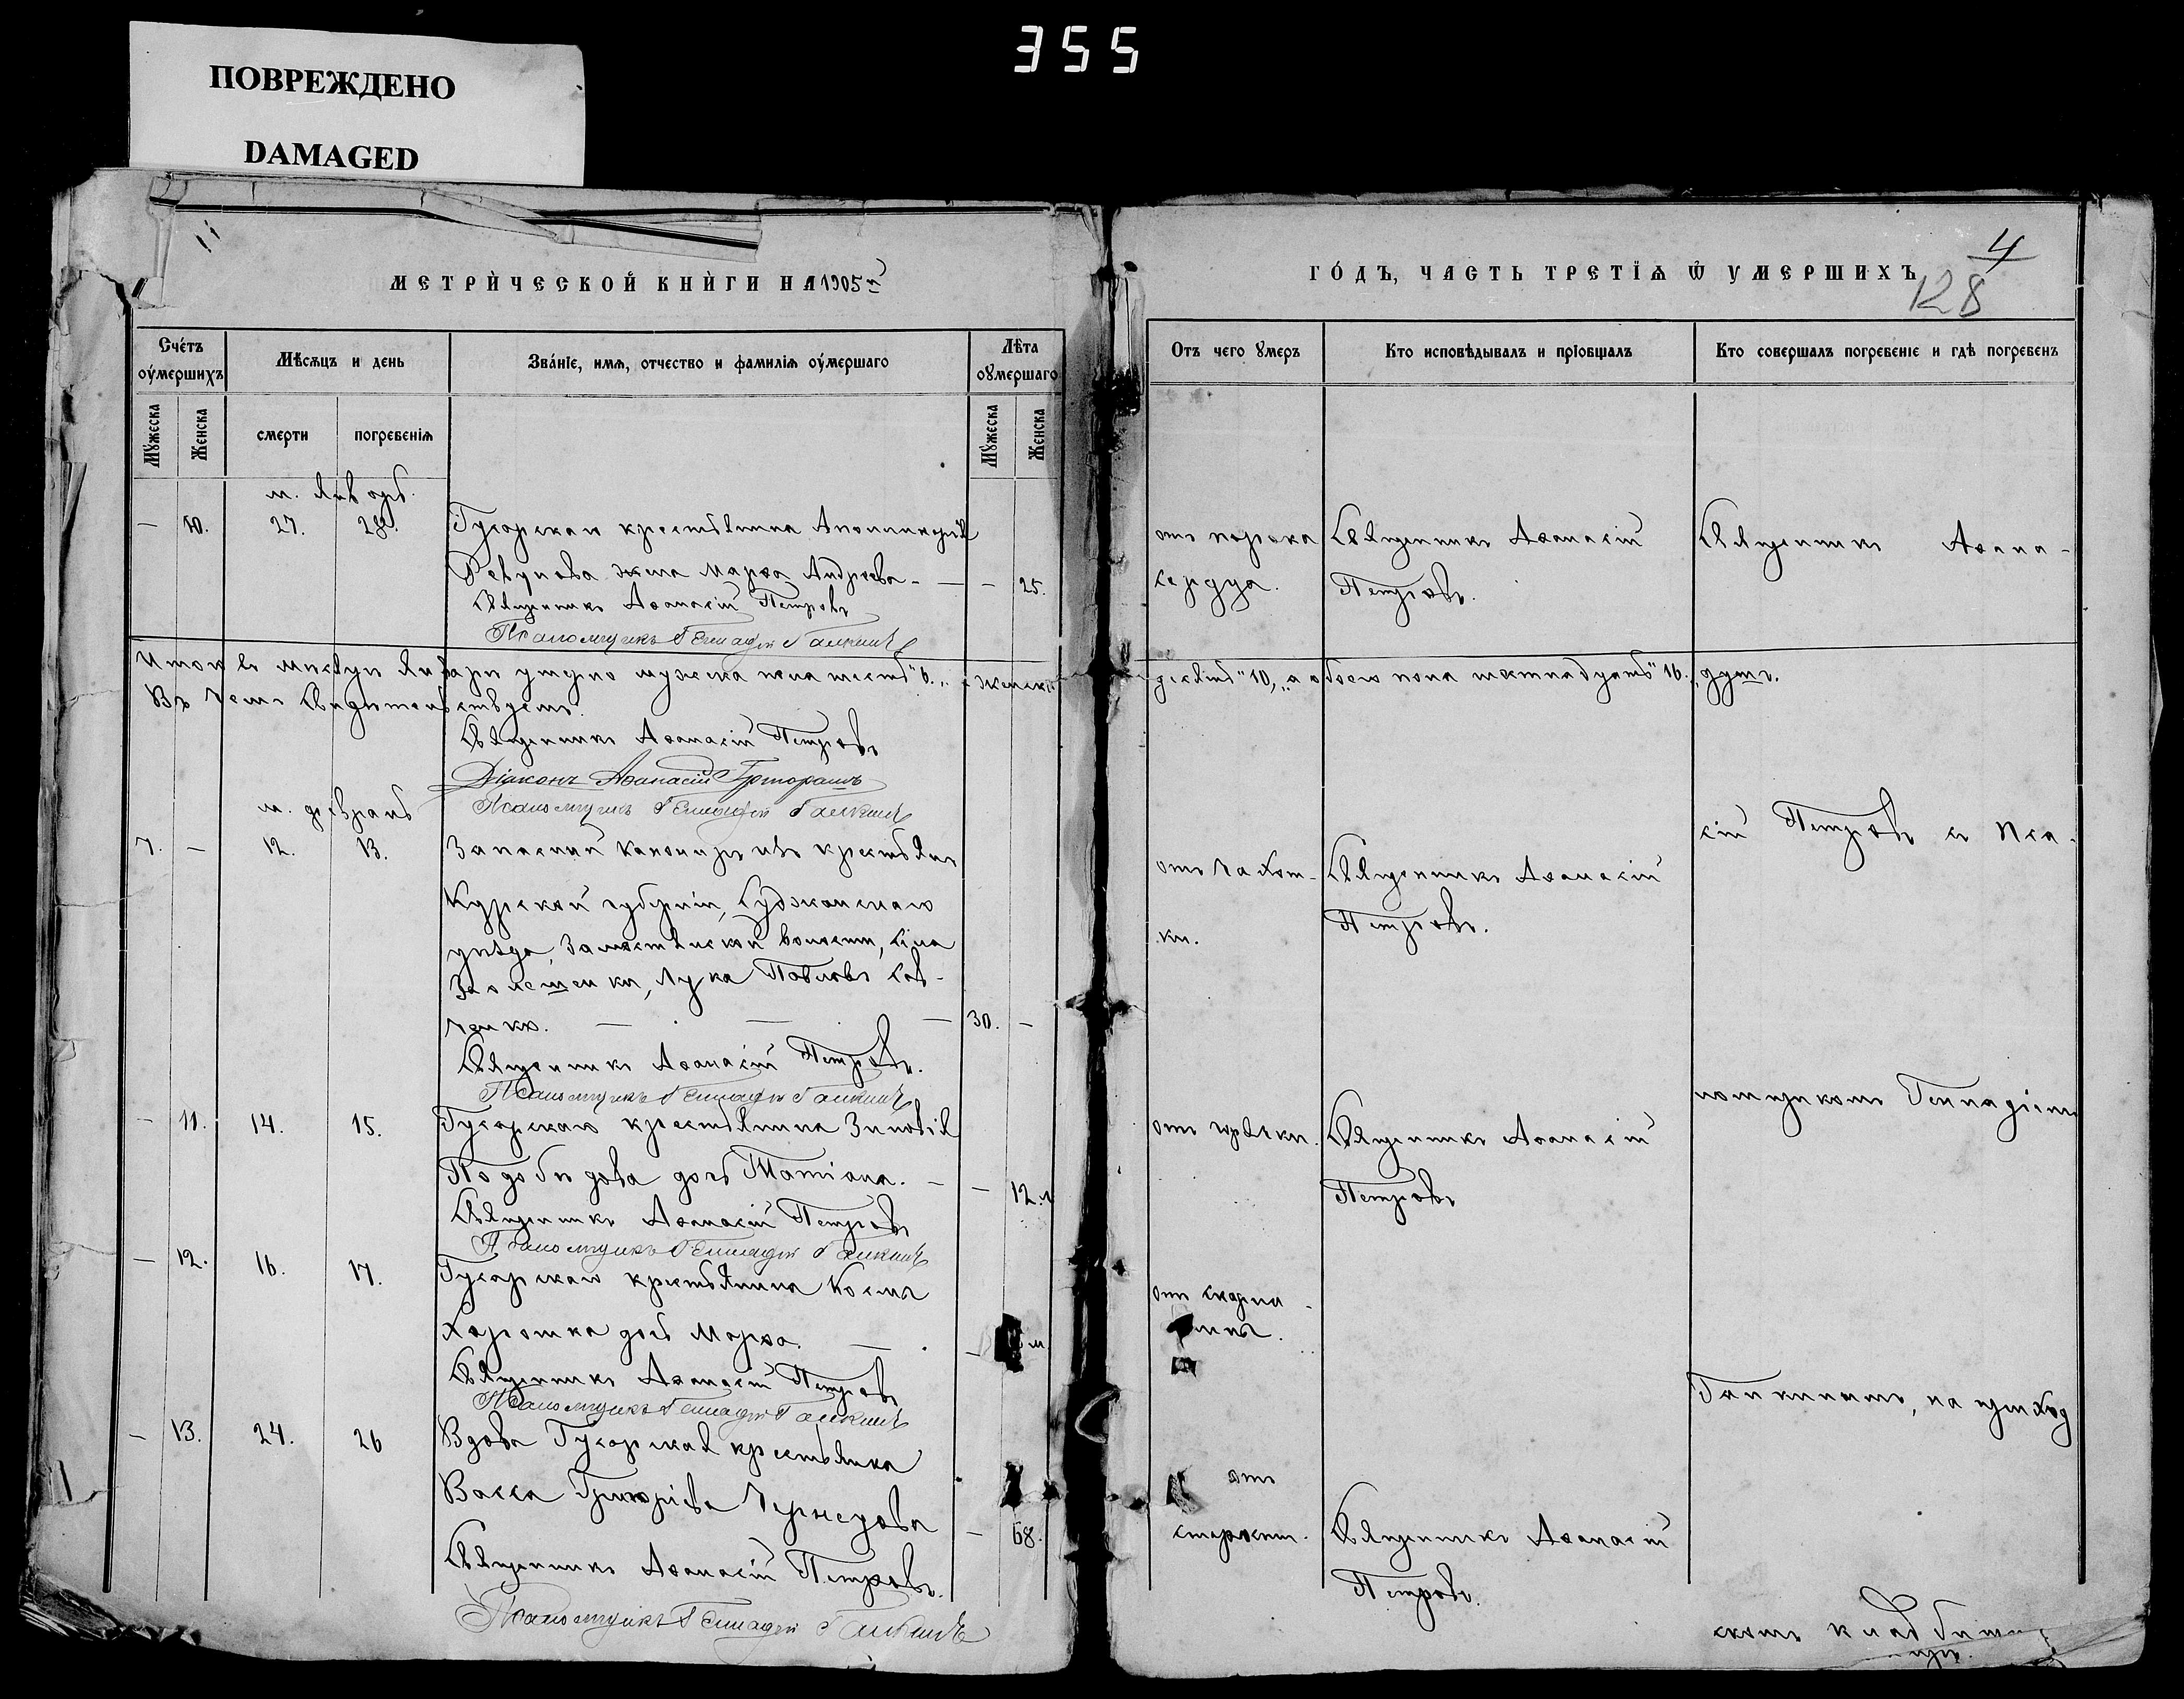 355
ПОВРЕЖДЕНО
DAMAGED
МЕТРИЧЕСКОЙ КНИГИ НА 1905 г.
Счетъ оумершихъ
Мѣсяцъ и день
Званіе, имя, отчество и фамилія оумершаго
Лѣта оумершаго
Мужеска
Женска
смерти
погребенія
Мужеска
Женска
м. Январь.
— 10. 27. 28. Гусарскаго крестьянина
Ревунова жена Марѳа Андреева. — — 25.
Священникъ Аѳанасій Петровъ
Псаломщикъ Геннадій Галкинъ
Итого въ мѣсяцѣ Январѣ умерло мужеска пола шесть "6", женска
Въ чемъ свидѣтельствуемъ:
Священникъ Аѳанасій Петровъ
Діаконъ Аѳанасій
Псаломщикъ Геннадій Галкинъ
м. февраль
7. — 12. 13. Запасный канониръ изъ крестьянъ
Курской губерніи, Суджанскаго
уѣзда, Замостянской волости, села
Заолешенки, Лука Павловъ Сав-
ченко. — — — 30. —
Священникъ Аѳанасій Петровъ.
Псаломщикъ Геннадій Галкинъ
— 11. 14. 15. Гусарскаго крестьянина Зиновія
дочь Татіана. — — 12.
Священникъ Аѳанасій Петровъ
Псаломщикъ Геннадій Галкинъ
— 12. 16. 17. Гусарскаго крестьянина Космы
дочь Марѳа. — — м.
Священникъ Аѳанасій Петровъ
Псаломщикъ Геннадій Галкинъ
— 13. 24. 26 Вдова Гусарская крестьянка
Васса Григоріева Чернецова
— 68.
Священникъ Аѳанасій Петровъ.
Псаломщикъ Геннадій Галкинъ
4
ГОДЪ, ЧАСТЬ ТРЕТІЯ Ѿ УМЕРШИХЪ
128
Отъ чего умеръ
Кто исповѣдывалъ и пріобщалъ
Кто совершалъ погребеніе и гдѣ погребенъ
отъ порока Священникъ Аѳанасій Священникъ Аѳана-
сердца. Петровъ.
десять "10", а обоего пола шестнадцать "16" душъ.
сій Петровъ съ Пса-
отъ чахот- Священникъ Аѳанасій
ки. Петровъ.
ломщикомъ Геннадіемъ
отъ горячки. Священникъ Аѳанасій
Петровъ
отъ скарла-
тины.
Галкинымъ, на приход
отъ
старости. Священникъ Аѳанасій
Петровъ.
скомъ кладбищѣ